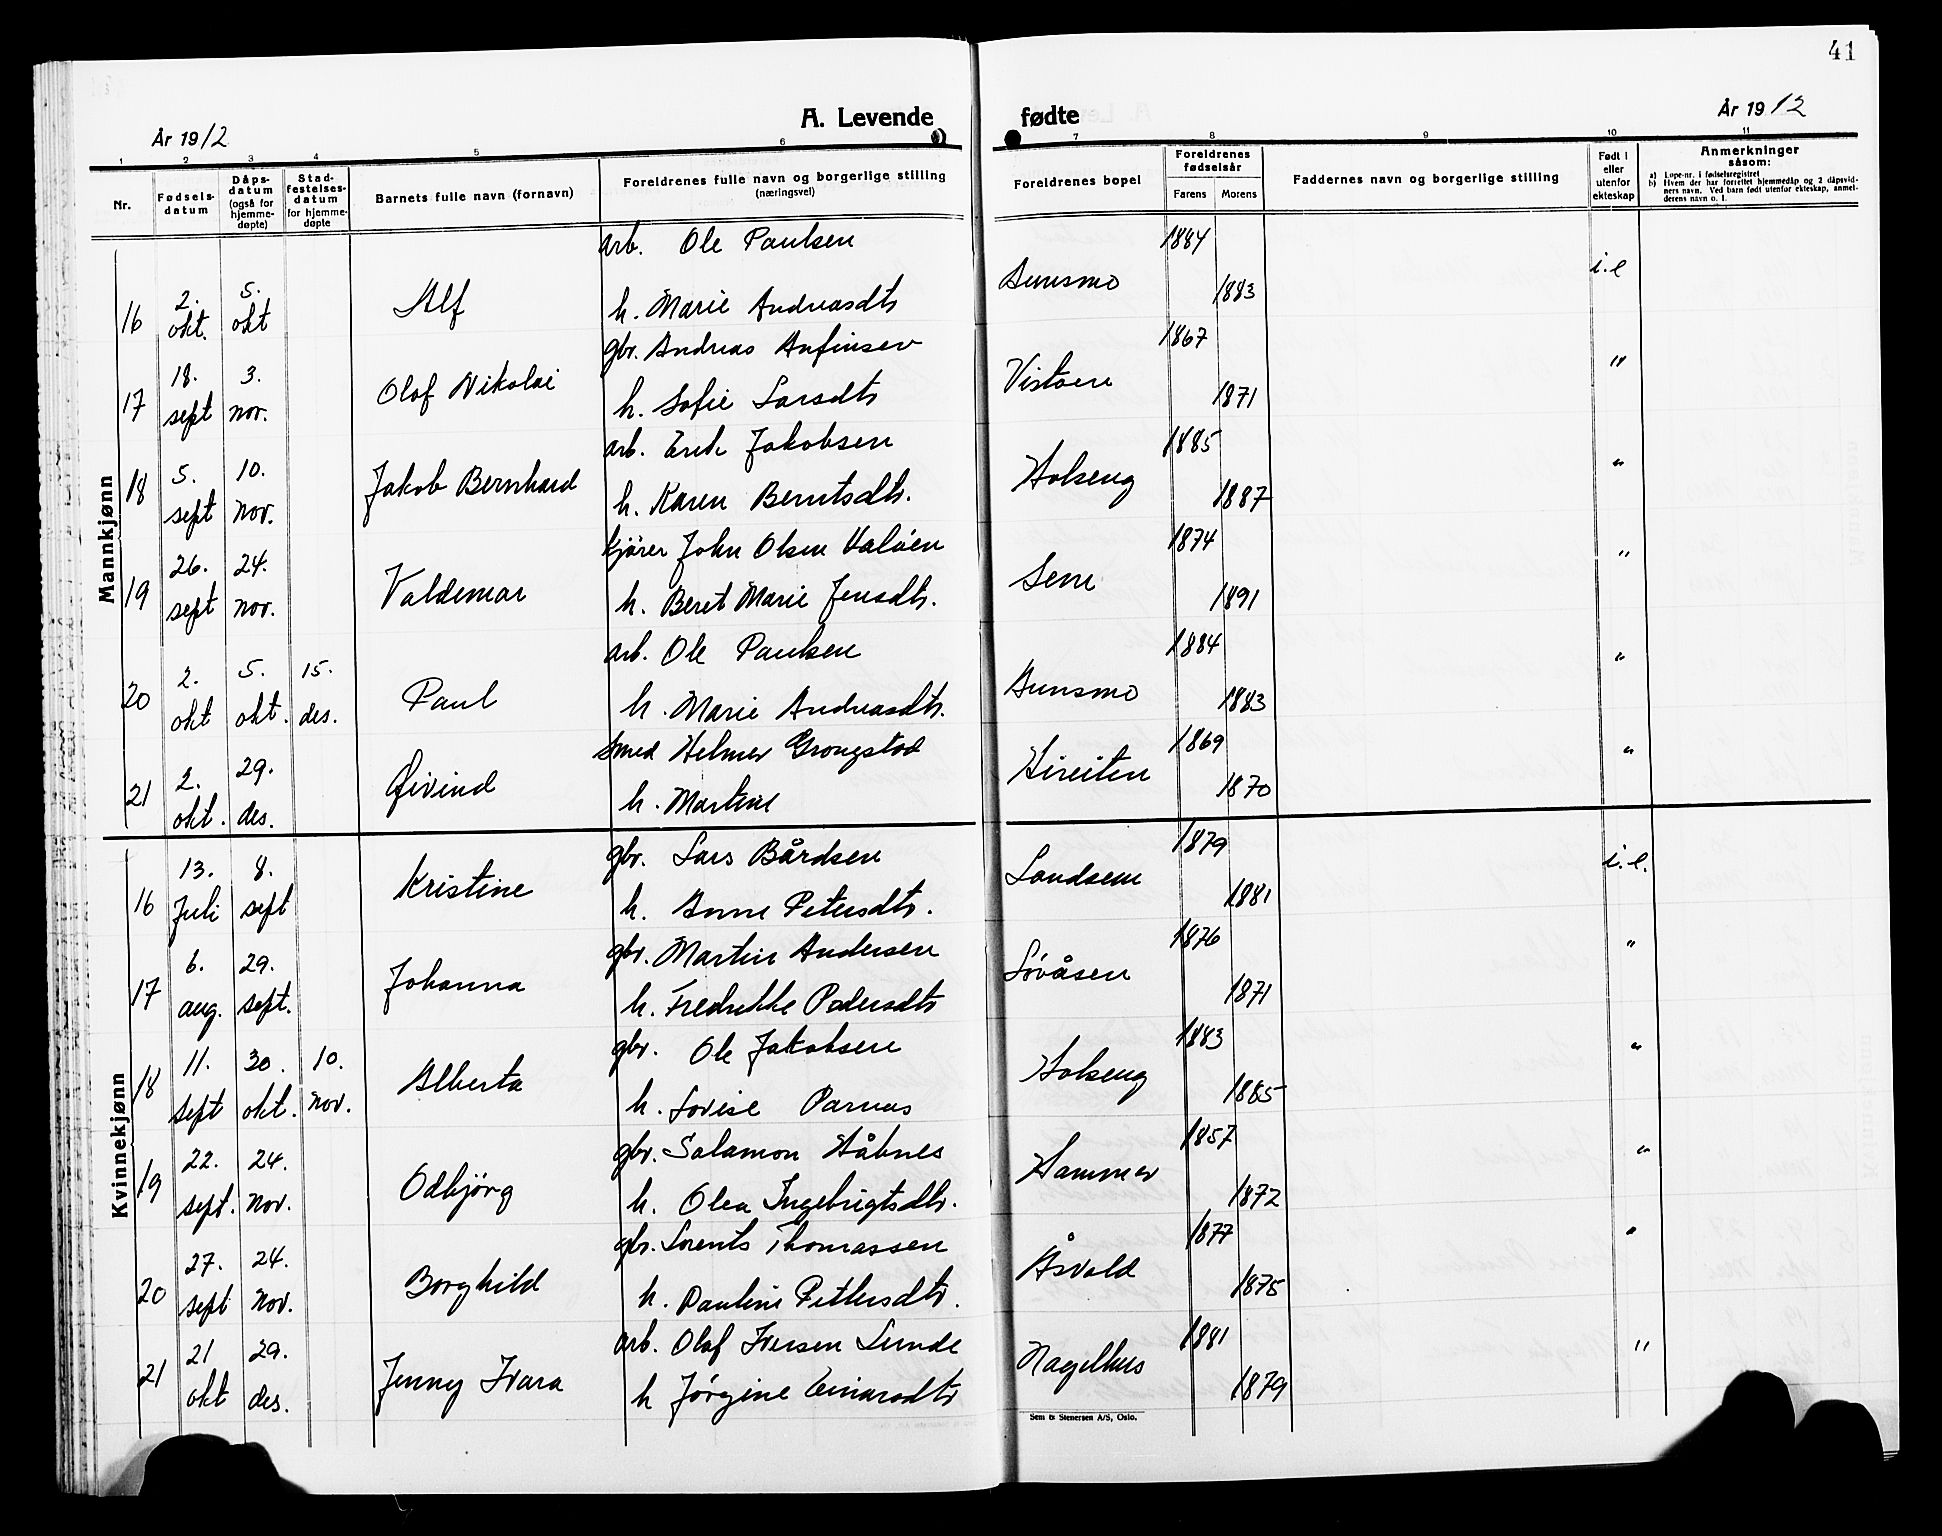 41
A. Levende fødte
År 1912
År 1912
1 2 3 4 5 6 7 8 9 10 11
Nr.
Fødsels-
datum
Dåps-
datum
(også for
hjemme-
døpte)
Stad-
festelses-
datum
for hjemme-
døpte
Barnets fulle navn (fornavn)
Foreldrenes fulle navn og borgerlige stilling
(næringsvei)
Foreldrenes bopel
Foreldrenes
fødselsår
Farens Morens
Faddernes navn og borgerlige stilling
Født i
eller
utenfor
ekteskap
Anmerkninger
såsom:
a) Løpe-nr. i fødselsregistret
b) Hvem der har forrettet hjemmedåp og 2 dåpsvid-
ners navn. Ved barn født utenfor ekteskap, anmel-
derens navn o. l.
Mannkjønn
arb. Ole Paulsen 1884
16 2. okt. 5. okt Alf h. Marie Andreasdtr Aunsmo 1883 i.e
gbr. Andreas Anfinsen 1867
17 18. sept 3. nov. Olaf Nikolai h. Sofie Larsdtr Vistven 1871 "
arb. Erik Jakobsen 1885
18 5. sept 10. nov. Jakob Bernhard h. Karen Berntsdtr. Holseng 1887 "
kjører John Olsen Valøen 1874
19 26. sept 24. nov. Valdemar h. Beret Marie Jensdtr. Sem 1891 "
arb. Ole Paulsen 1884
20 2. okt 5. okt. 15. des. Paul h. Marie Andreasdtr. Aunsmo 1883 "
smed Helmer Grongstad 1869
21 2. okt. 29. des. Øivind h. Martine Hireiten 1870 "
Kvinnekjønn
gbr. Lars Bårdsen 1879
16 13. Juli 8. sept Kristine h. Anne Petersdtr. Landsem 1881 i.e.
gbr. Martin Andersen 1876
17 6. aug. 29. sept. Johanna h. Fredrikke Pedersdtr Løvåsen 1871 "
gbr. Ole Jakobsen 1883
18 11. sept 30. okt. 10. nov. Alberta h. Lovise Parnas Holseng 1885 "
gbr. Salamon Håbnes 1857
19 22. sept. 24. nov. Odbjørg h. Olea Ingebrigtsdtr. Hammer 1872 "
gbr. Lorents Thomassen 1877
20 27. sept 24. nov. Borghild h. Pauline Pettersdtr. Åsvold 1875 "
arb. Olaf Iversen Lunde 1881
21 21 okt 29. des. Jenny Ivara h Jørgine Einarsdtr Nagelhus 1879 "
Sem & Stenersen A/S, Oslo.